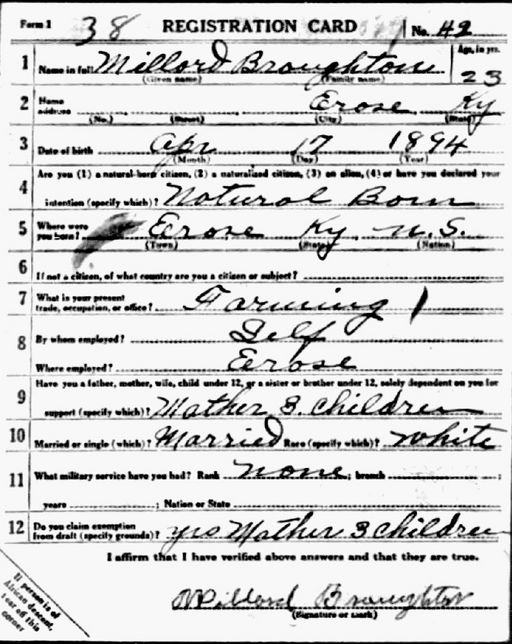 Form 1 38 REGISTRATION CARD No. 42
1 Name in full Millord Broughton Age, in yrs. 23
(Given name) (Family name)
2 Home address Erose Ky
(No.) (Street) (City) (State)
3 Date of birth Apr 17 1894
(Month) (Day) (Year)
4 Are you (1) a natural-born citizen, (2) a naturalized citizen, (3) an alien, (4) or have you declared your
intention (specify which)? Notural Born
5 Where were you born? Erose Ky U.S.
(Town) (State) (Nation)
6 If not a citizen, of what country are you a citizen or subject?
7 What is your present trade, occupation, or office? Farming
8 By whom employed? Self
Where employed? Erose
9 Have you a father, mother, wife, child under 12, or a sister or brother under 12, solely dependent on you for
support (specify which)? Mather 3 children
10 Married or single (which)? Married Race (specify which)? White
11 What military service have you had? Rank none ; branch ;
years ; Nation or State
12 Do you claim exemption from draft (specify grounds)? yes Mather 3 children
I affirm that I have verified above answers and that they are true.
Millord Broughton
(Signature or mark)
If person is of
African descent,
tear off this
corner